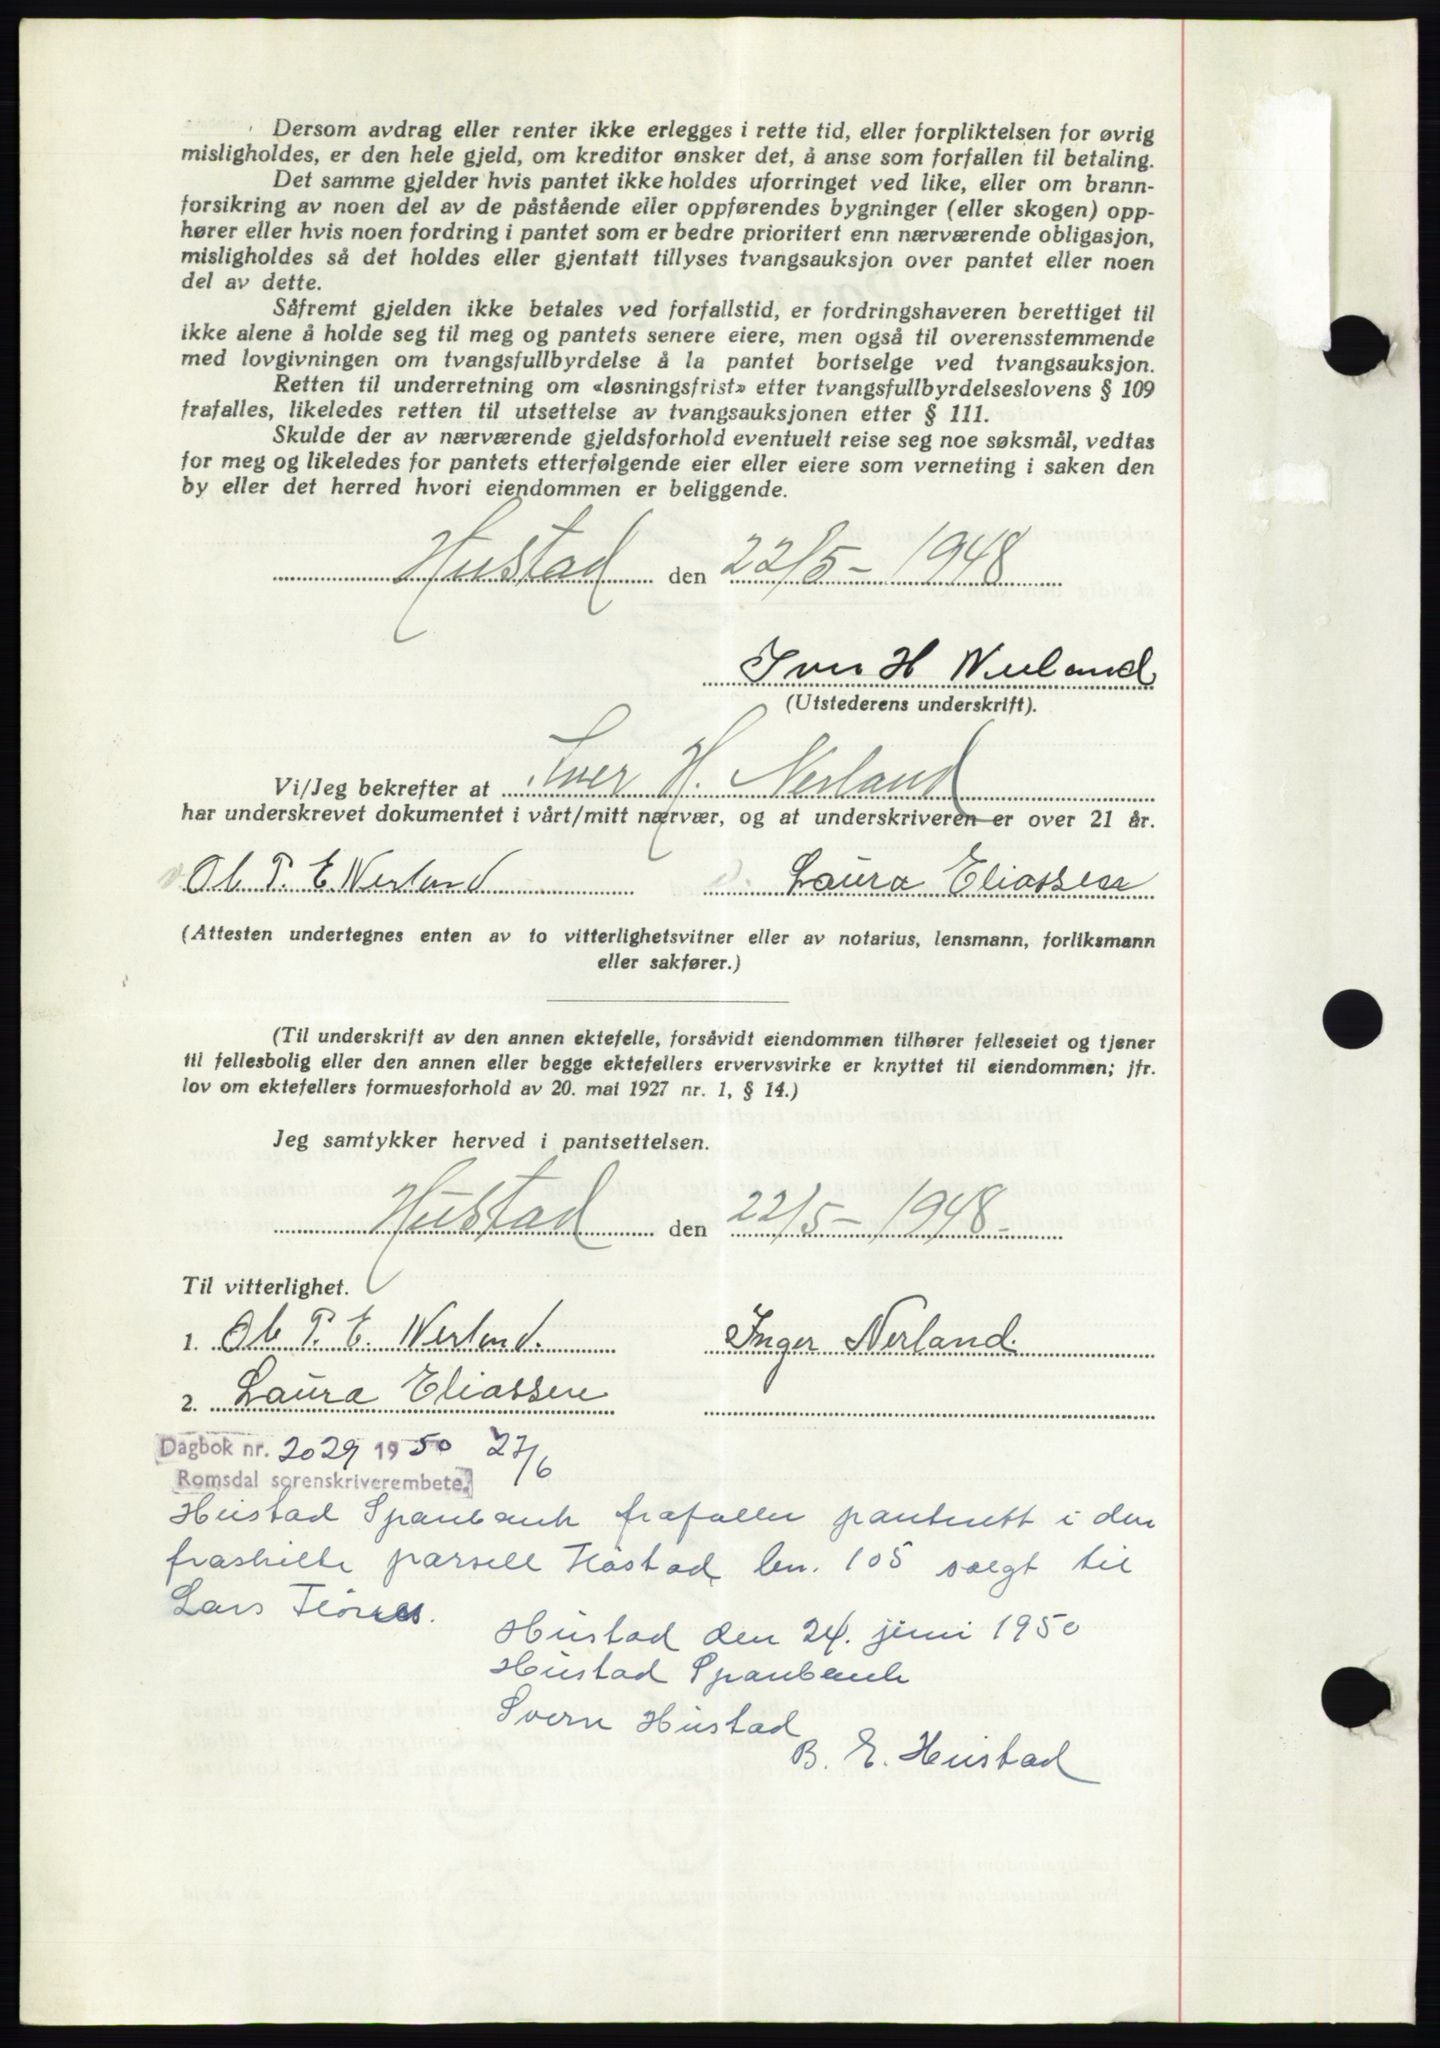 Dersom avdrag eller renter ikke erlegges i rette tid, eller forpliktelsen for øvrig
misligholdes, er den hele gjeld, om kreditor ønsker det, å anse som forfallen til betaling.
Det samme gjelder hvis pantet ikke holdes uforringet ved like, eller om brann-
forsikring av noen del av de påstående eller oppførendes bygninger (eller skogen) opp-
hører eller hvis noen fordring i pantet som er bedre prioritert enn nærværende obligasjon,
misligholdes så det holdes eller gjentatt tillyses tvangsauksjon over pantet eller noen
del av dette.
Såfremt gjelden ikke betales ved forfallstid, er fordringshaveren berettiget til
ikke alene å holde seg til meg og pantets senere eiere, men også til overensstemmende
med lovgivningen om tvangsfullbyrdelse å la pantet bortselge ved tvangsauksjon.
Retten til underretning om «løsningsfrist» etter tvangsfullbyrdelseslovens § 109
frafalles, likeledes retten til utsettelse av tvangsauksjonen etter § 111.
Skulde der av nærværende gjeldsforhold eventuelt reise seg noe søksmål, vedtas
for meg og likeledes for pantets etterfølgende eier eller eiere som verneting i saken den
by eller det herred hvori eiendommen er beliggende.
Hustad den 22/5 - 1948
Iver H Nerland
(Utstederens underskrift).
Vi/Jeg bekrefter at Iver H. Nerland
har underskrevet dokumentet i vårt/mitt nærvær, og at underskriveren er over 21 år.
Ole P. E Nerland Laura Eliassen
(Attesten undertegnes enten av to vitterlighetsvitner eller av notarius, lensmann, forliksmann
eller sakfører.)
(Til underskrift av den annen ektefelle, forsåvidt eiendommen tilhører felleseiet og tjener
til fellesbolig eller den annen eller begge ektefellers ervervsvirke er knyttet til eiendommen; jfr.
lov om ektefellers formuesforhold av 20. mai 1927 nr. 1, § 14.)
Jeg samtykker herved i pantsettelsen.
Hustad den 22/5 - 1948.
Til vitterlighet.
1. Ole P. E. Nerland. Inger Nerland.
2. Laura Eliassen
Dagbok nr. 2029 1950 27/6
Romsdal sorenskriverembete.
Hustad Sparebank frafaller panterett i den
fraskilte parsell bn. 105 solgt til
Lars
Hustad den 24. juni 1950
Hustad Sparebank
Sverre Hustad
B. E. Hustad